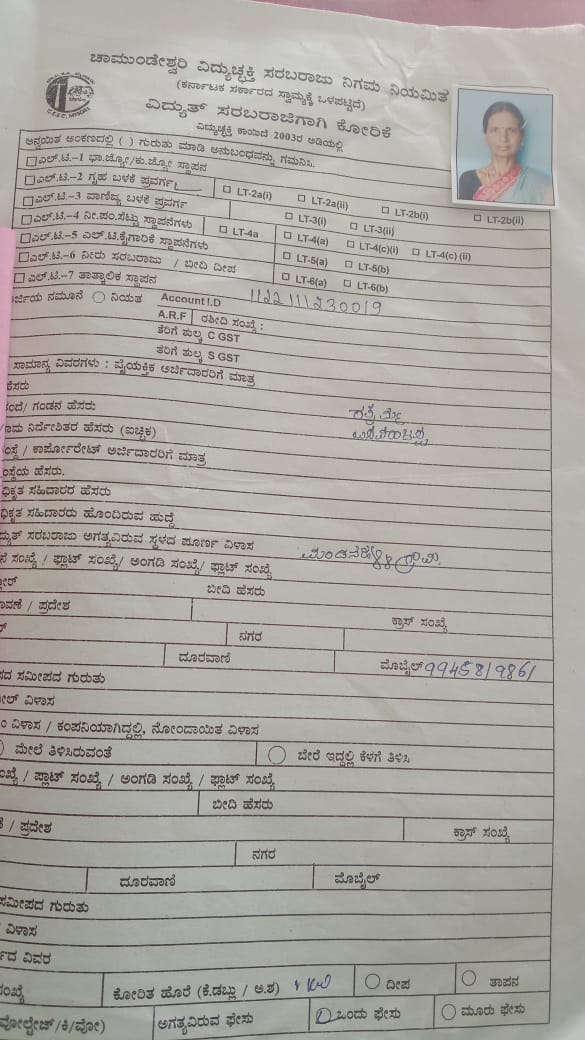 ಚಾಮುಂಡೇಶ್ವರಿ ವಿದ್ಯುಚ್ಛಕ್ತಿ ಸರಬರಾಜು ನಿಗಮ ನಿಯಮಿತ
(ಕರ್ನಾಟಕ ಸರ್ಕಾರದ ಸ್ವಾಮ್ಯಕ್ಕೆ ಒಳಪಟ್ಟಿದೆ)
ವಿದ್ಯುತ್ ಸರಬರಾಜಿಗಾಗಿ ಕೋರಿಕೆ
ವಿದ್ಯುಚ್ಛಕ್ತಿ ಕಾಯಿದೆ 2003ರ ಅಡಿಯಲ್ಲಿ
ಅನ್ವಯಿತ ಅಂಕಣದಲ್ಲಿ ( ) ಗುರುತು ಮಾಡಿ ಅನುಬಂಧವನ್ನು ಗಮನಿಸಿ.
ಎಲ್.ಟಿ.-1 ಭಾ.ಜ್ಯೋ/ಕು.ಜ್ಯೋ ಸ್ಥಾಪನ
ಎಲ್.ಟಿ.-2 ಗೃಹ ಬಳಕೆ ಪ್ರವರ್ಗ LT-2a(i) LT-2a(ii) LT-2b(i) LT-2b(ii)
ಎಲ್.ಟಿ.-3 ವಾಣಿಜ್ಯ ಬಳಕೆ ಪ್ರವರ್ಗ LT-3(i) LT-3(ii)
ಎಲ್.ಟಿ.-4 ನೀ.ಪಂ.ಸೆಟ್ಟು ಸ್ಥಾಪನೆಗಳು LT-4a LT-4(a) LT-4(c)(i) LT-4(c) (ii)
ಎಲ್.ಟಿ.-5 ಎಲ್.ಟಿ.ಕೈಗಾರಿಕೆ ಸ್ಥಾಪನೆಗಳು LT-5(a) LT-5(b)
ಎಲ್.ಟಿ.-6 ನೀರು ಸರಬರಾಜು / ಬೀದಿ ದೀಪ LT-6(a) LT-6(b)
ಎಲ್.ಟಿ.-7 ತಾತ್ಕಾಲಿಕ ಸ್ಥಾಪನ
ರ್ಜಿಯ ನಮೂನೆ ನಿಯತ Account I.D
A.R.F ರಶೀದಿ ಸಂಖ್ಯೆ :
ತೆರಿಗೆ ಶುಲ್ಕ C GST
ತೆರಿಗೆ ಶುಲ್ಕ S GST
ಸಾಮಾನ್ಯ ವಿವರಗಳು : ವೈಯಕ್ತಿಕ ಅರ್ಜಿದಾರರಿಗೆ ಮಾತ್ರ
ಹೆಸರು
ಂದೆ/ ಗಂಡನ ಹೆಸರು
ಾಮ ನಿರ್ದೇಶಿತರ ಹೆಸರು (ಐಚ್ಛಿಕ)
ಂಸ್ಥೆ / ಕಾರ್ಪೋರೇಟ್ ಅರ್ಜಿದಾರರಿಗೆ ಮಾತ್ರ
ಂಸ್ಥೆಯ ಹೆಸರು.
ಧಿಕೃತ ಸಹಿದಾರರ ಹೆಸರು
ಧಿಕೃತ ಸಹಿದಾರರು ಹೊಂದಿರುವ ಹುದ್ದೆ
ದ್ಯುತ್ ಸರಬರಾಜು ಅಗತ್ಯವಿರುವ ಸ್ಥಳದ ಪೂರ್ಣ ವಿಳಾಸ
ನೆ ಸಂಖ್ಯೆ / ಫ್ಲಾಟ್ ಸಂಖ್ಯೆ/ ಅಂಗಡಿ ಸಂಖ್ಯೆ/ ಫ್ಲಾಟ್ ಸಂಖ್ಯೆ
ಬೀದಿ ಹೆಸರು
ಾವಣೆ / ಪ್ರದೇಶ ಕ್ರಾಸ್ ಸಂಖ್ಯೆ
ನಗರ
ದೂರವಾಣಿ ಮೊಬೈಲ್ 9945819861
ಪದ ಸಮೀಪದ ಗುರುತು
ೇಲ್ ವಿಳಾಸ
ವಿಳಾಸ / ಕಂಪನಿಯಾಗಿದ್ದಲ್ಲಿ, ನೋಂದಾಯಿತ ವಿಳಾಸ
ಮೇಲೆ ತಿಳಿಸಿರುವಂತೆ ಬೇರೆ ಇದ್ದಲ್ಲಿ ಕೆಳಗೆ ತಿಳಿಸಿ
ಂಖ್ಯೆ / ಪ್ಲಾಟ್ ಸಂಖ್ಯೆ / ಅಂಗಡಿ ಸಂಖ್ಯೆ / ಫ್ಲಾಟ್ ಸಂಖ್ಯೆ
ಬೀದಿ ಹೆಸರು
/ ಪ್ರದೇಶ ಕ್ರಾಸ್ ಸಂಖ್ಯೆ
ನಗರ
ದೂರವಾಣಿ ಮೊಬೈಲ್
ಸಮೀಪದ ಗುರುತು
ವಿಳಾಸ
ರ್ದ ವಿವರ
ಸಂಖ್ಯೆ ಕೋರಿತ ಹೊರೆ (ಕೆ.ಡಬ್ಲು / ಅ.ಶ) ದೀಪ ತಾಪನ
ವೋಲ್ಟೇಜ್/ಕಿ/ವೋ) ಅಗತ್ಯವಿರುವ ಫೇಸು ಒಂದು ಫೇಸು ಮೂರು ಫೇಸು